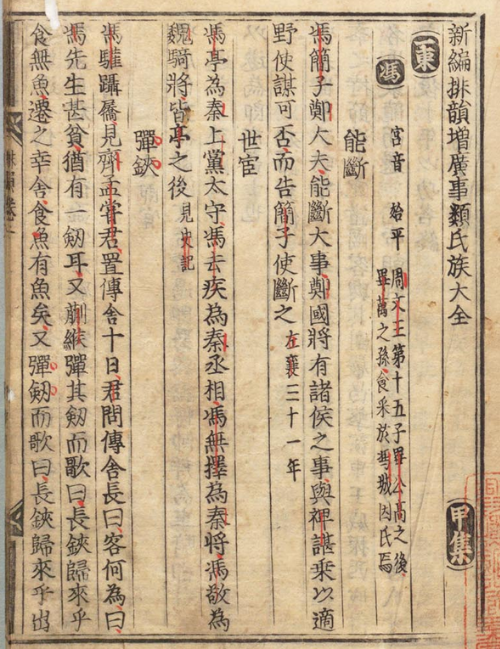 新編排韻增廣事類氏族大全
一東 甲集
馮 宮音 始平 周文王第十五子畢公高之後
畢萬之孫食采於馮城因氏焉
能斷
馮簡子鄭大夫能斷大事鄭國將有諸侯之事與裨諶乘以適
野使謀可否而告簡子使斷之 左襄三十一年
世宦
馮亭為秦上黨太守馮去疾為秦丞相馮無擇為秦將馮敬為
魏騎將皆亭之後 見史記
彈鋏
馮驩躡屩見齊孟嘗君置傳舍十日君問傳舍長曰客何為曰
馮先生甚貧猶有一劒耳又蒯緱彈其劒而歌曰長鋏歸來乎
食無魚遷之幸舍食魚有魚矣又彈劒而歌曰長鋏歸來乎出